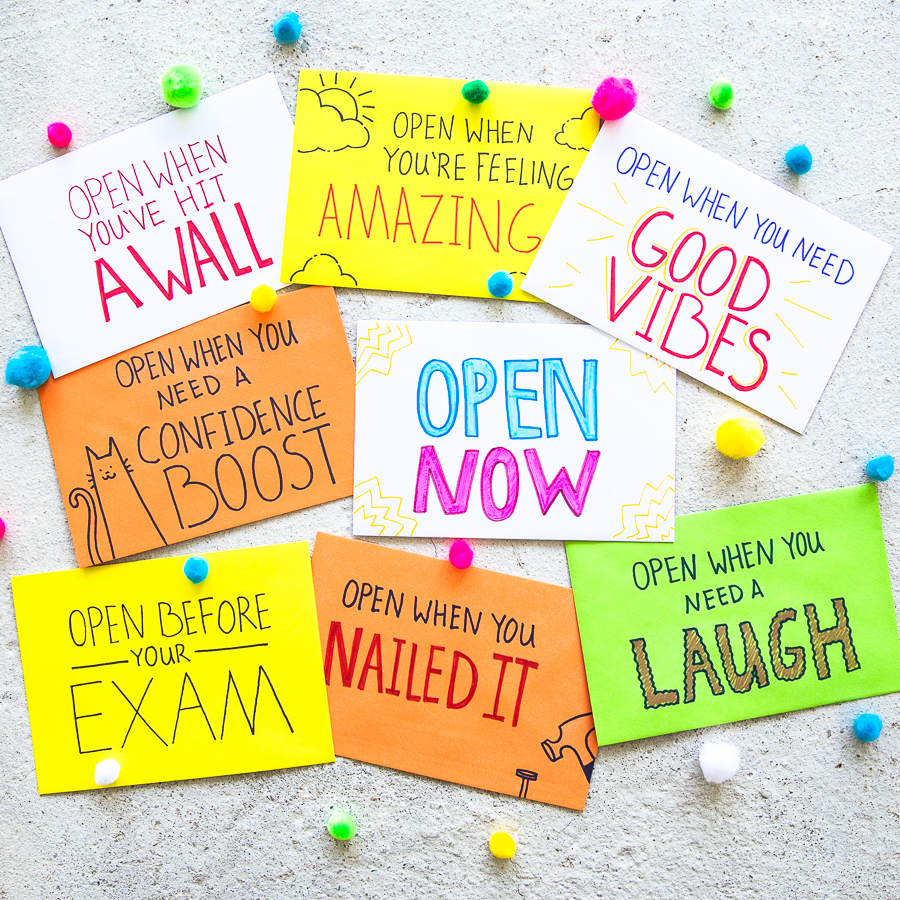 OPEN WHEN
YOU'VE HIT
A WALL
OPEN WHEN
YOU'RE FEELING
AMAZING
OPEN WHEN YOU NEED
GOOD
VIBES
OPEN WHEN YOU
NEED A
CONFIDENCE
BOOST
OPEN
NOW
OPEN BEFORE
YOUR
EXAM
OPEN WHEN YOU
NAILED IT
OPEN WHEN YOU
NEED A
LAUGH